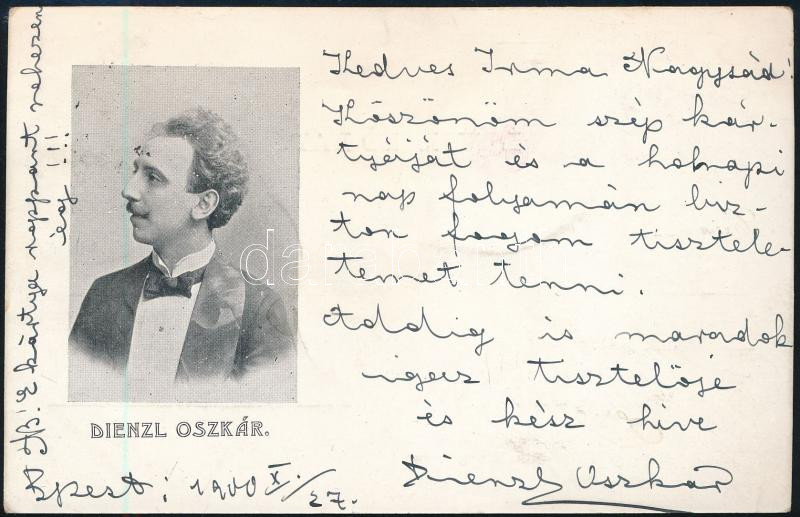 Kedves Irma Nagysád!
Köszönöm szép kár-
tyáját és a holnapi
nap folyamán biz-
ton fogom tisztele-
temet tenni.
Addig is maradok
igaz tisztelője
és kész híve
Dienzl Oszkár
DIENZL OSZKÁR.
Bpest, 1900 X./27.
NB! E kártya roppant nehezen
ég!!!